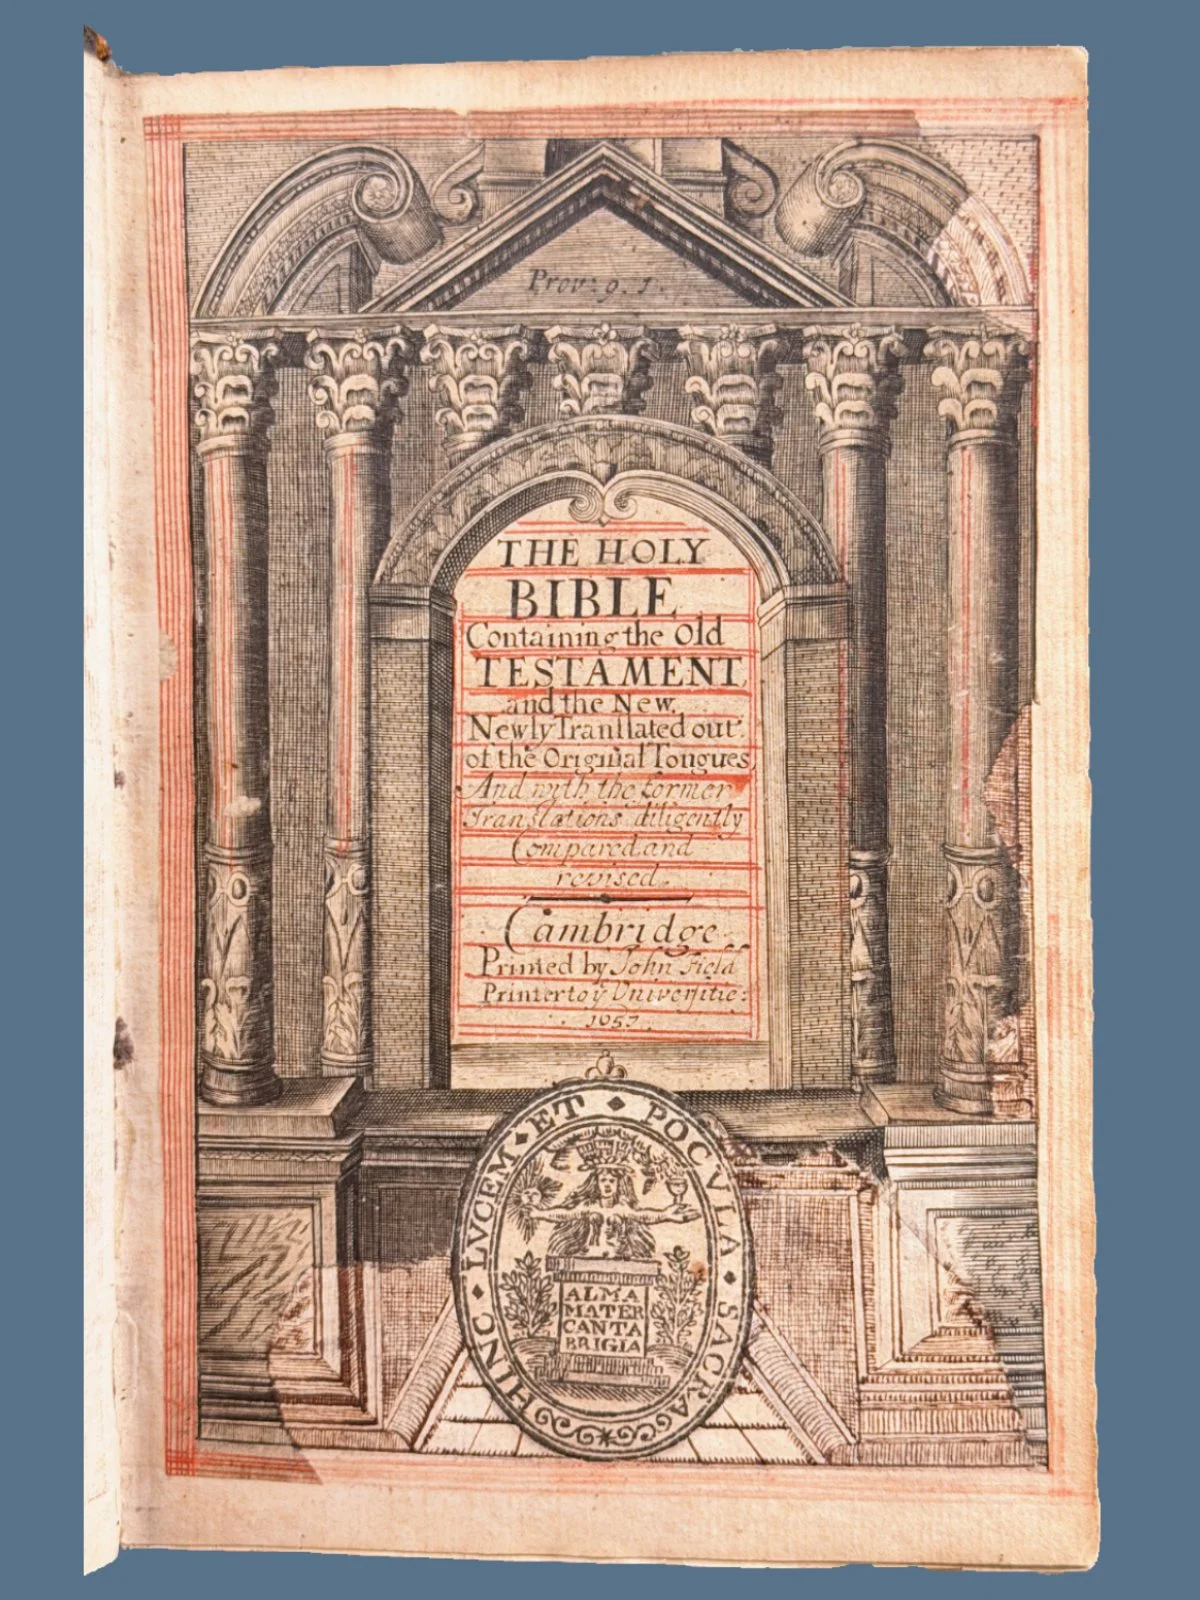 Prov: 9. 1.
THE HOLY
BIBLE
Containing the Old
TESTAMENT
and the New.
Newly Tranſlated out
of the Original Tongues
And with the former
Translations diligently
Compared and
revised.
Cambridge
Printed by John Field
Printer to ẏ Univerſitie:
1657.
HINC · LVCEM · ET · POCVLA · SACRA
ALMA
MATER
CANTA
BRIGIA